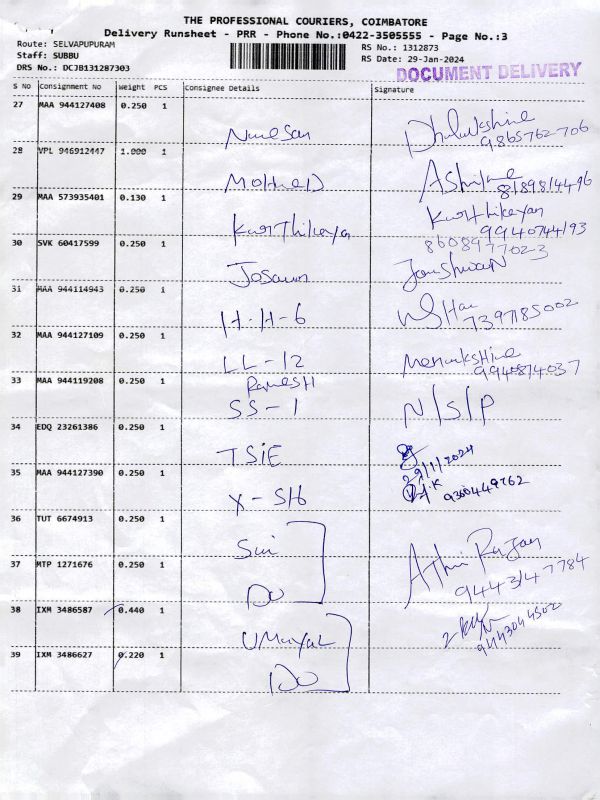 THE PROFESSIONAL COURIERS, COIMBATORE
Delivery Runsheet - PRR - Phone No.:0422-3505555 - Page No.:3
Route: SELVAPUPURAM
Staff: SUBBU
DRS No.: DCJB131287303
RS No.: 1312873
RS Date: 29-Jan-2024
DOCUMENT DELIVERY
S No Consignment No Weight PCS Consignee Details Signature
27 MAA 944127408 0.250 1
9865762706
28 VPL 946912447 1.000 1
29 MAA 573935401 0.130 1
Karthikeyan Karthikeyan
9940744193
8608977023
30 SVK 60417599 0.250 1
31 MAA 944114943 0.250 1
H-H-6
7397185002
32 MAA 944127109 0.250 1
LL-12
33 MAA 944119208 0.250 1
Ramesh
SS-1 N/S/P
34 EDQ 23261386 0.250 1
TSIE
29/1/2024
35 MAA 944127390 0.250 1
X-SH 9360449762
36 TUT 6674913 0.250 1
37 MTP 1271676 0.250 1
Do
9443147784
38 IXM 3486587 0.440 1
Umayal
9443044502
39 IXM 3486627 0.220 1
Do